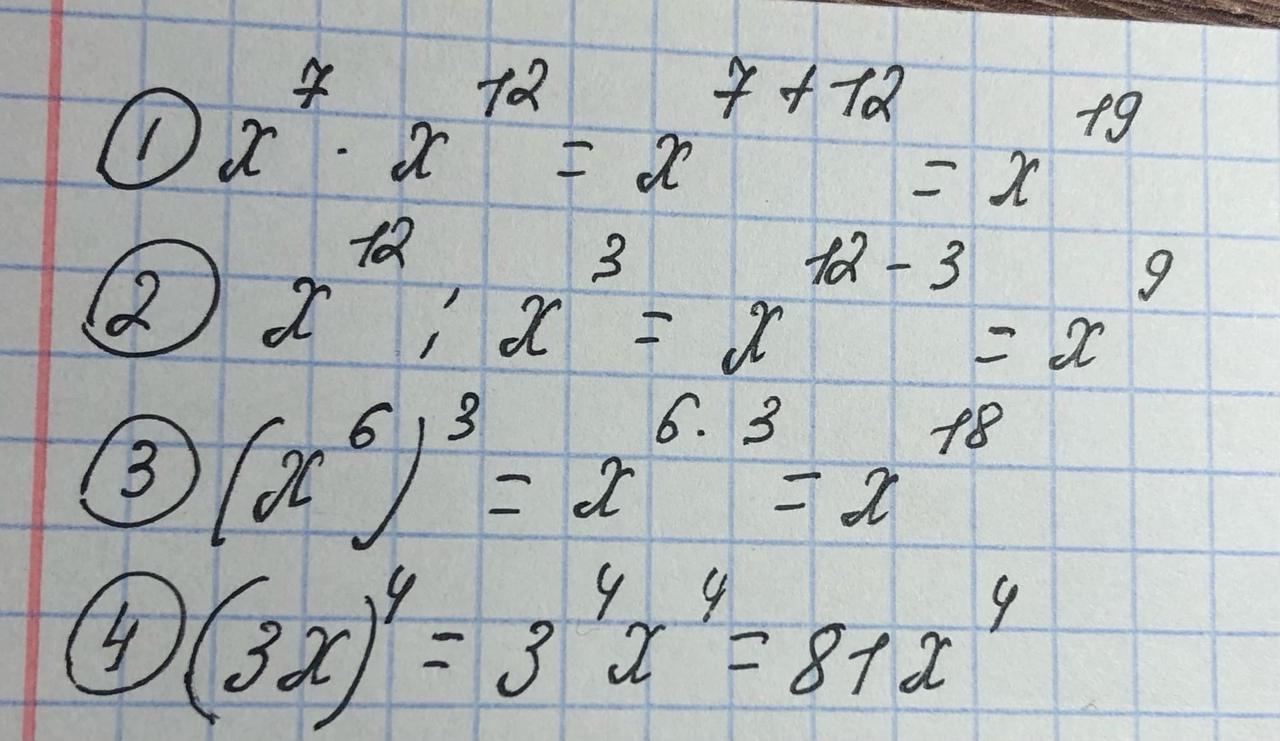 ① x⁷ · x¹² = x⁷⁺¹² = x¹⁹
② x¹² : x³ = x¹²⁻³ = x⁹
③ (x⁶)³ = x⁶·³ = x¹⁸
④ (3x)⁴ = 3⁴x⁴ = 81x⁴